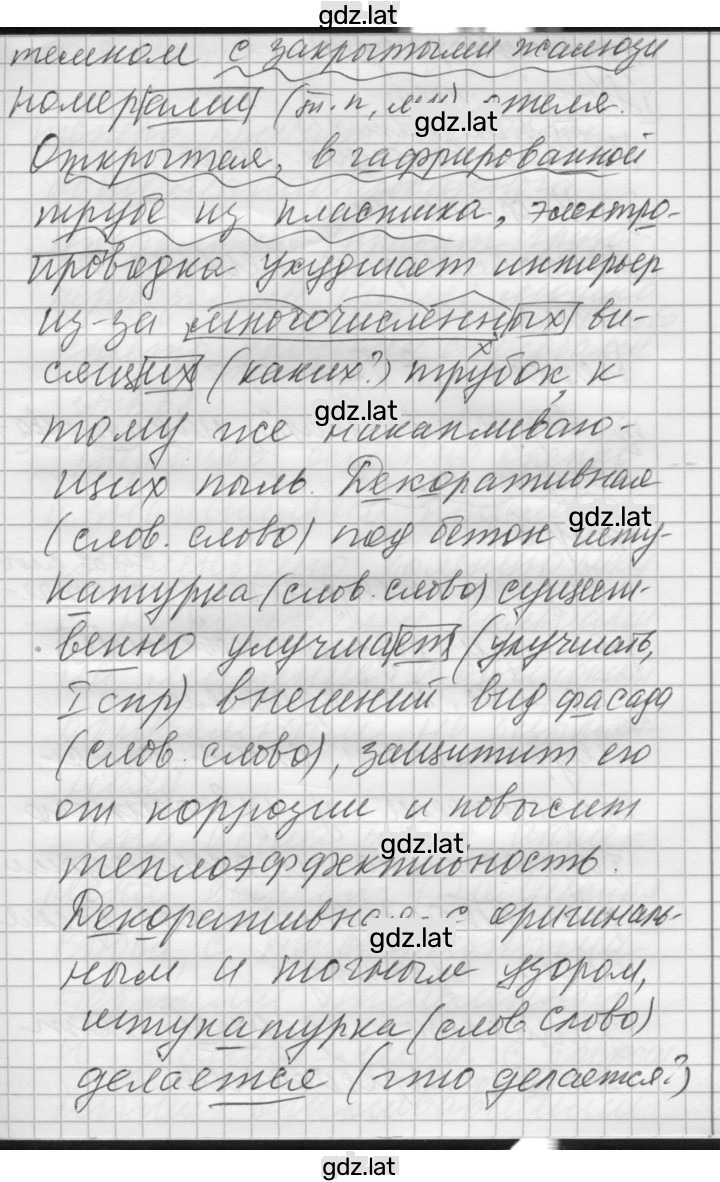 gdz.lat
темном с закрытыми жалюзи
номерами (т.п, мн) отеля.
gdz.lat
Открытая, в гафрированной
трубе из пластика, электро-
проводка ухудшает интерьер
из-за многочисленных ви-
сящих (каких?) трубок, к
gdz.lat
тому же накапливаю-
щих пыль. Декоративная
gdz.lat
(слов. слово) под бетон шту-
катурка (слов. слово) сущест-
венно улучшает (улучшать,
I спр) внешний вид фасада
(слов. слово), защитит его
от коррозии и повысит
gdz.lat
теплоэффективность.
Декоративная с оригиналь-
gdz.lat
ным и точным узором,
штукатурка (слов слово)
делается (что делается?)
gdz.lat